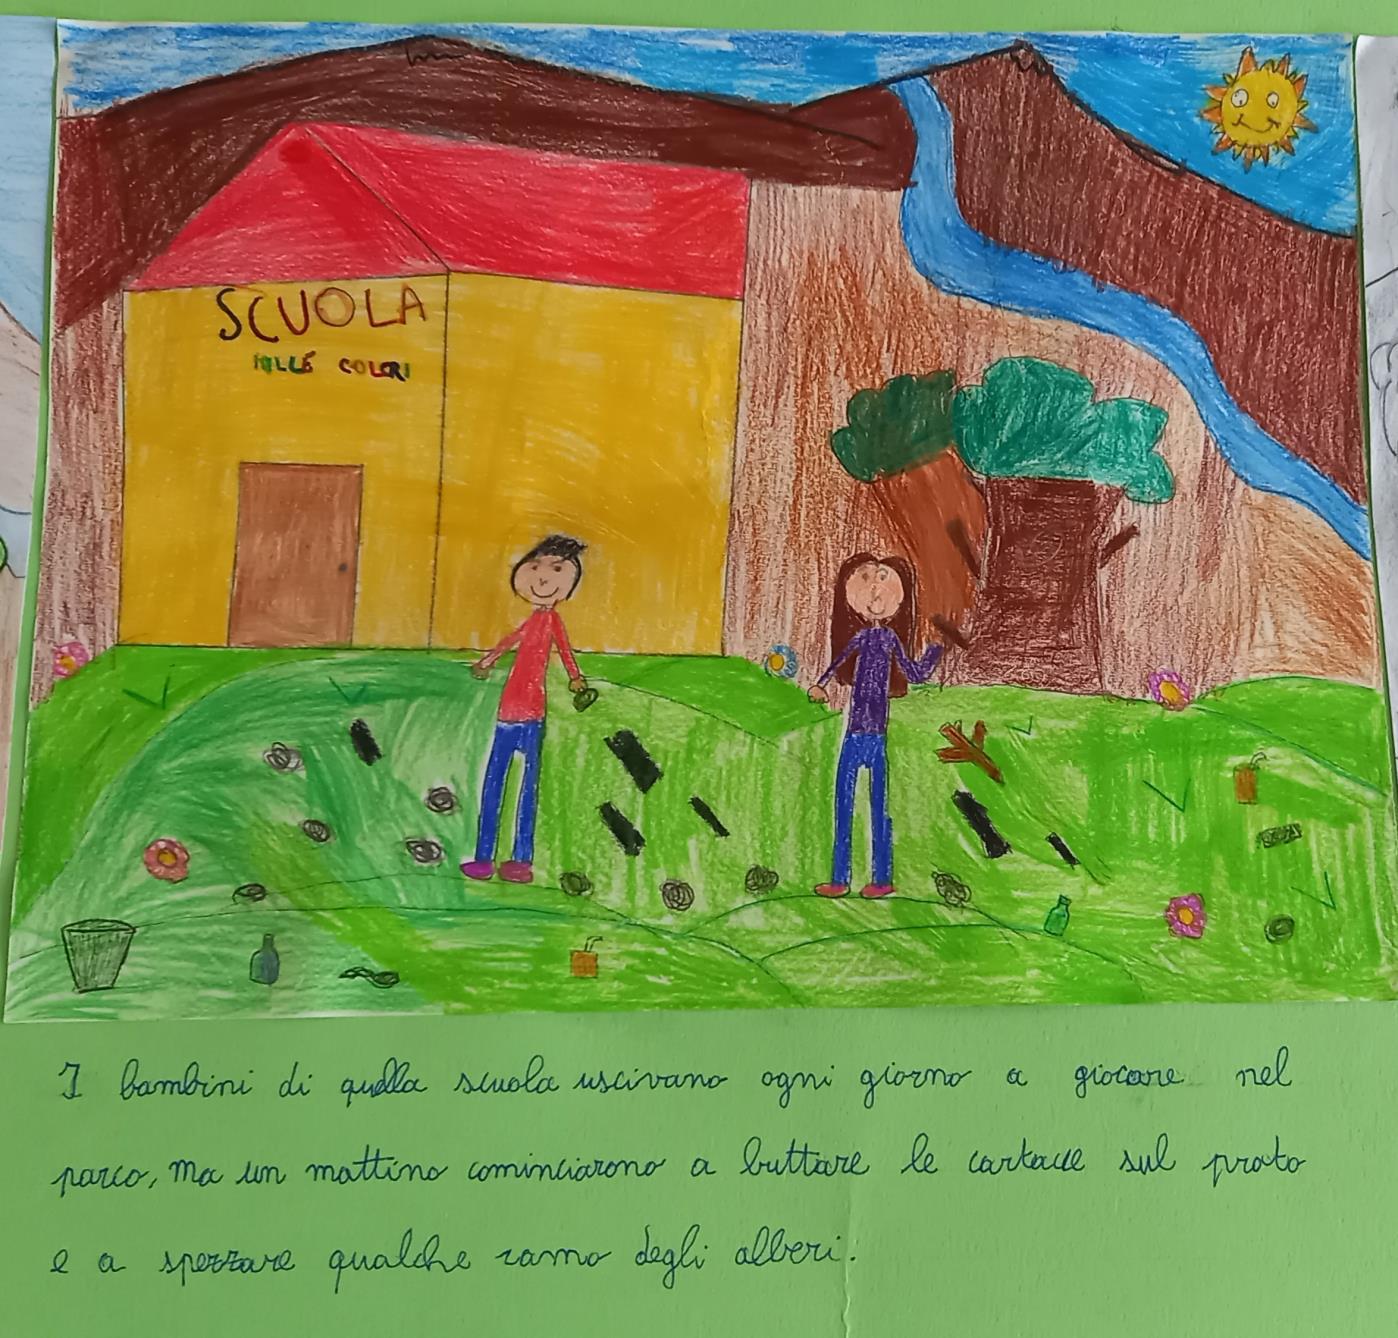 SCUOLA
MILLE COLORI
I bambini di quella scuola uscivano ogni giorno a giocare nel
parco, ma un mattino cominciarono a buttare le cartacce sul prato
e a spezzare qualche ramo degli alberi.